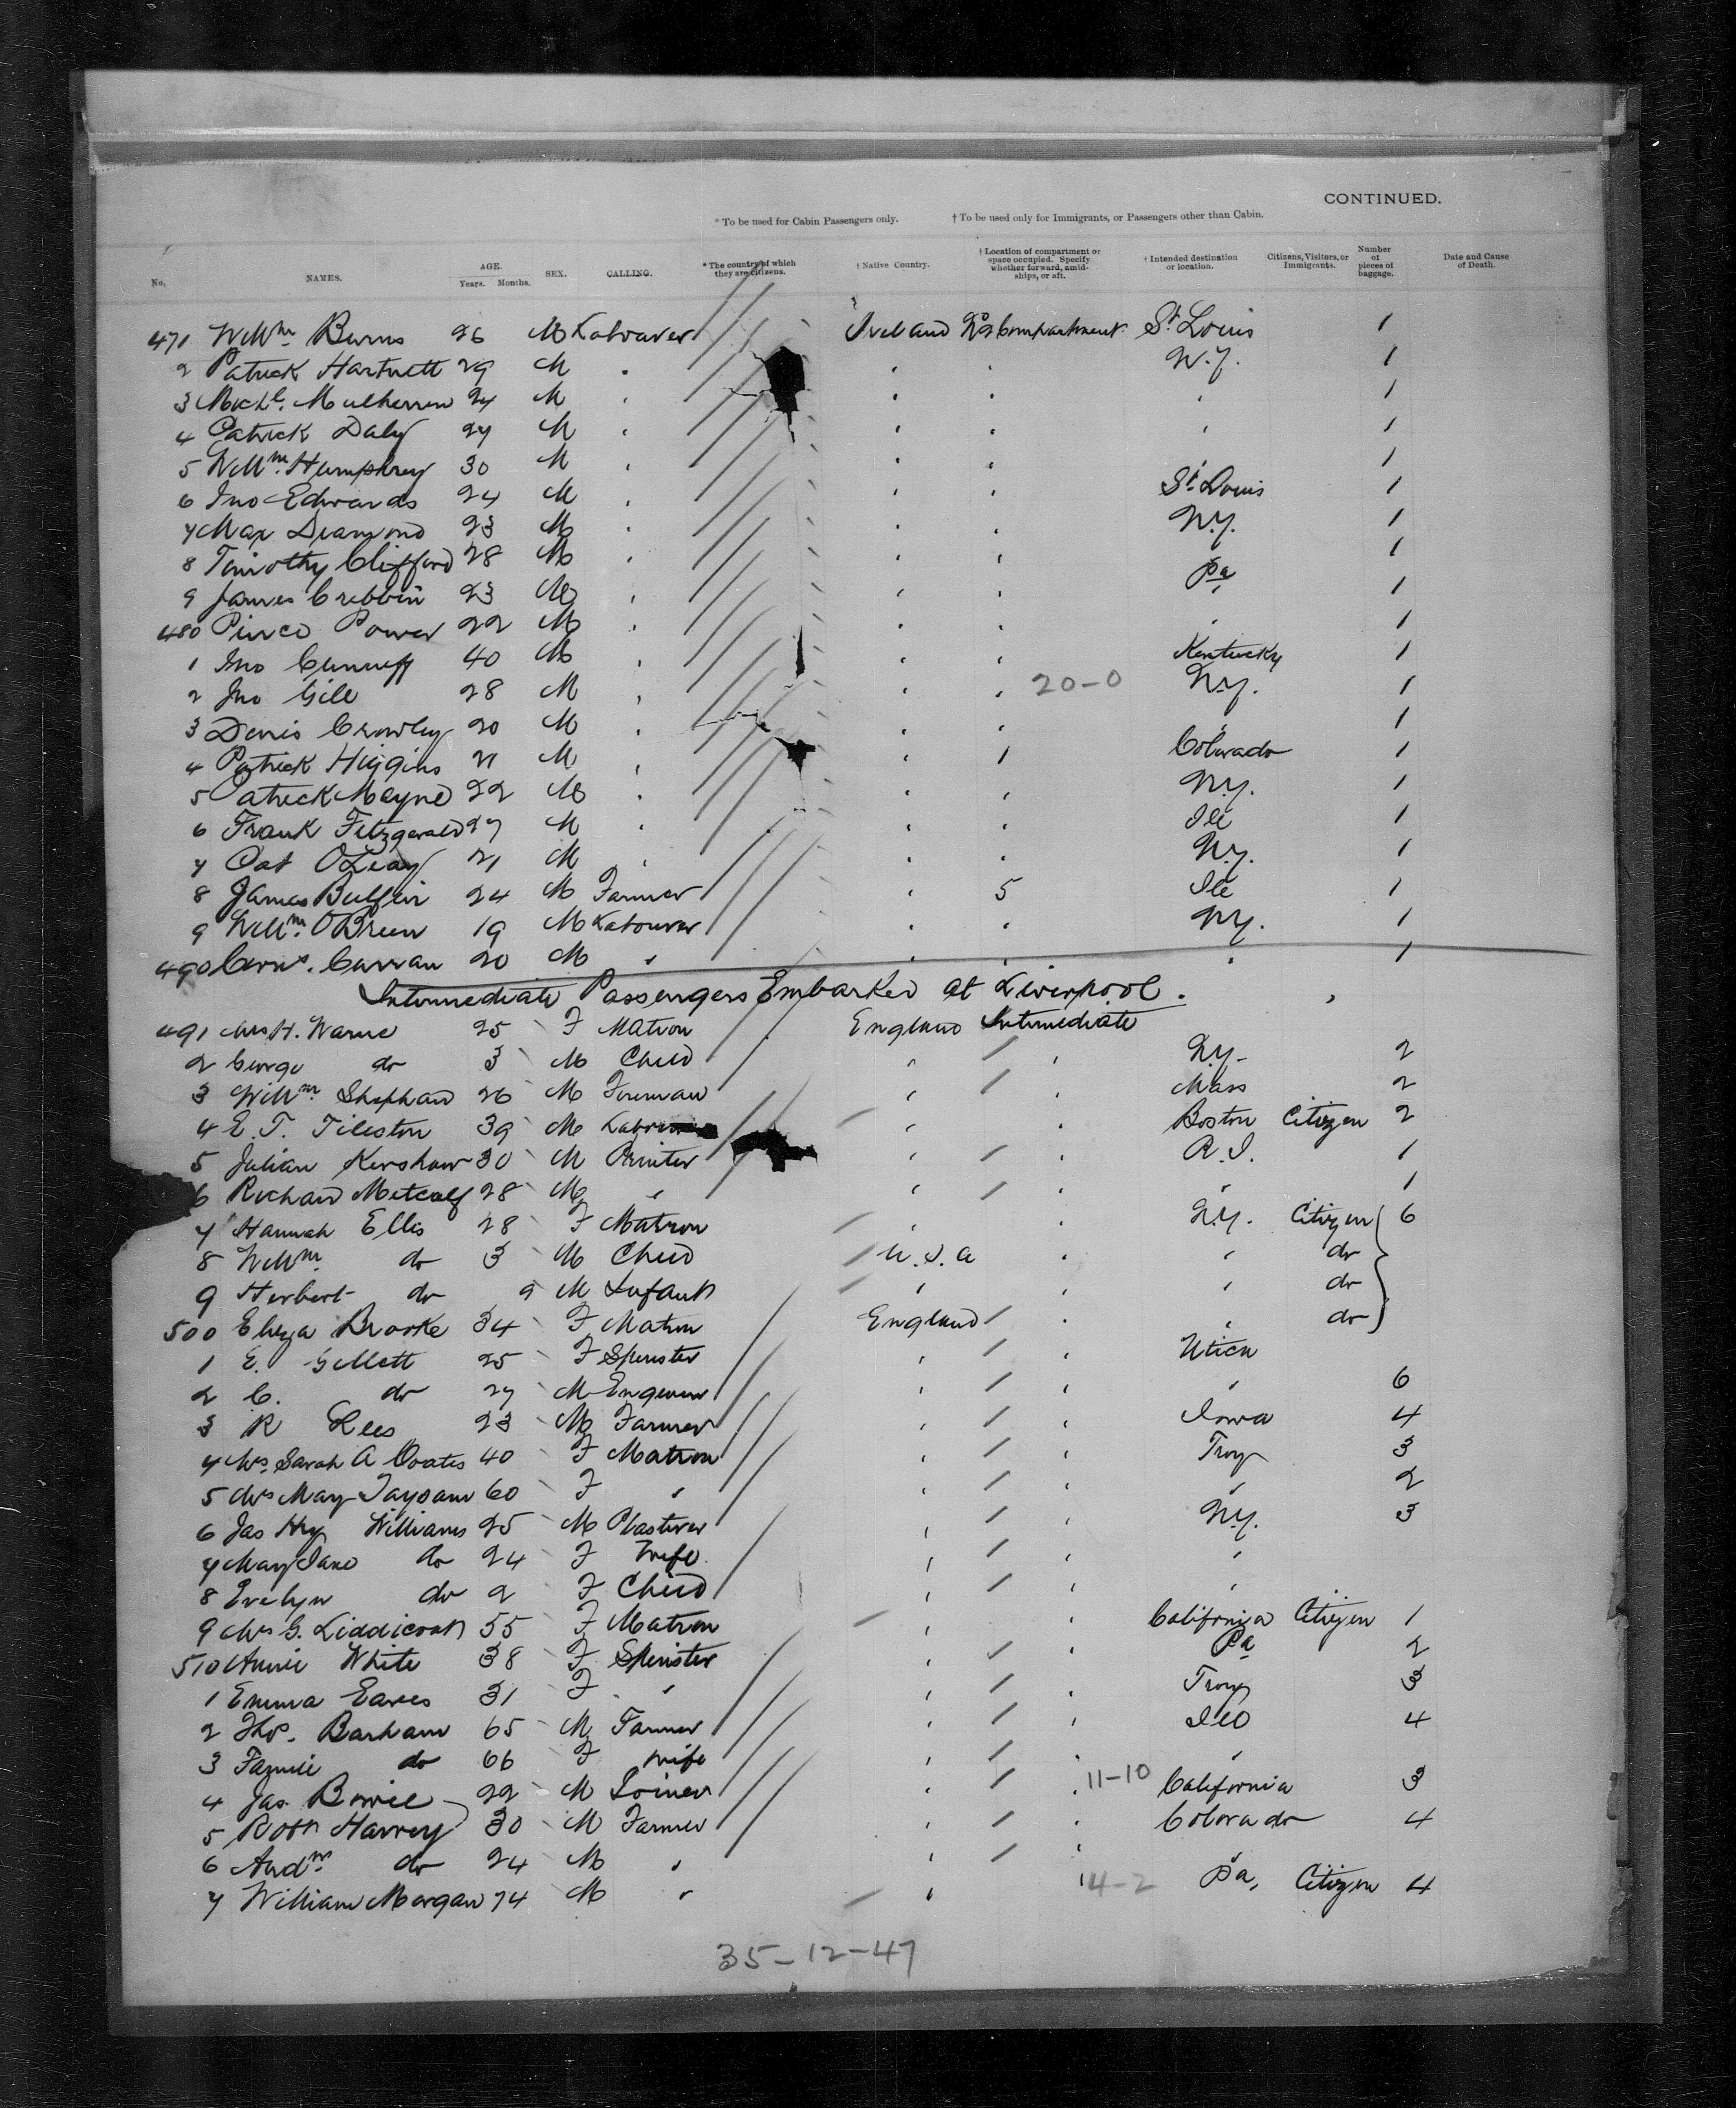 CONTINUED.
* To be used for Cabin Passengers only. † To be used only for Immigrants, or Passengers other than Cabin.
No. NAMES. AGE. Years. Months. SEX. CALLING. * The country of which they are citizens. † Native Country. † Location of compartment or space occupied. Specify whether forward, amidships, or aft. † Intended destination or location. Citizens, Visitors, or Immigrants. Number of pieces of baggage. Date and Cause of Death.
471 Willm Burns 26 M Labourer Ireland Compartment St Louis 1
2 Patrick Hartnett 29 M N.Y. 1
3 Michl. Mulherrin 24 M 1
4 Patrick Daly 27 M 1
5 Willm. Humphrey 30 M 1
6 Jno Edwards 24 M St Louis 1
7 Max Diamond 23 M N.Y. 1
8 Timothy Clifford 28 M 1
9 James Cribbin 23 M Pa 1
480 Pierce Power 22 M 1
1 Jno 40 M Kentucky 1
2 Jno Gill 28 M 20-0 N.Y. 1
3 Denis Crowley 20 M 1
4 Patrick Higgins 21 M 1 Colorado 1
5 Patrick Mayne 22 M N.Y. 1
6 Frank Fitzgerald 27 M Ill 1
7 Pat OLeary 21 M N.Y. 1
8 James Bulfin 24 M Farmer 5 Ill 1
9 Willm. OBrien 19 M Labourer N.Y. 1
490 Corns. Curran 20 M " 1
Intermediate Passengers Embarked at Liverpool.
491 Mrs H. Warne 25 F Matron England Intermediate
2 George do 3 M Child N.Y. 2
3 Willm. Shephard 26 M Foreman Mass 2
4 E. T. Tileston 39 M Boston Citizen 2
5 Julian Kershaw 30 M Printer R.I. 1
6 Richard Metcalf 28 M " 1
7 Hannah Ellis 28 F Matron N.Y. Citizen 6
8 Willm. do 3 M Child U.S.A do
9 Herbert do 9 M Infant do
500 Eliza Brooke 34 F Matron England do
1 E. Gillett 25 F Spinster Utica
2 C. do 27 M Engineer 6
3 R Lees 23 M Farmer Iowa 4
4 Mrs. Sarah A Coates 40 F Matron Troy 3
5 Mrs Mary 60 F " 2
6 Jas Hry Williams 25 M Plasterer N.Y. 3
7 Mary Jane do 24 F Wife
8 Evelyn do 2 F Child
9 Mrs G. Liddicoat 55 F Matron California Citizen 1
510 Annie White 38 F Spinster Pa 2
1 Emma Eaves 31 F " Troy 3
2 Thos. Barham 65 M Farmer Ill 4
3 Fannie do 66 F Wife
4 Jas. Bowie 22 M Joiner 11-10 California 3
5 Robt Harvey 30 M Farmer Colorado 4
6 Andw. do 24 M "
7 William Morgan 74 M " 4-2 Pa, Citizen 4
35-12-47